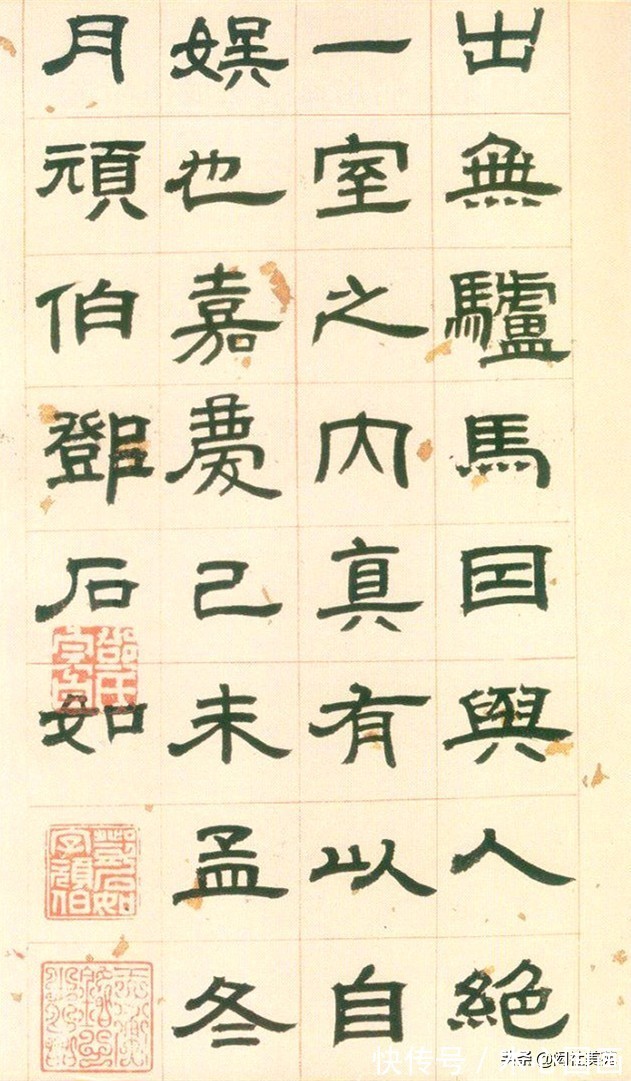 出無驢馬因與人絕
一室之內真有以自
娛也嘉慶己未孟冬
月頑伯鄧石如
鄧石如字頑伯
快传号 /
头条 @